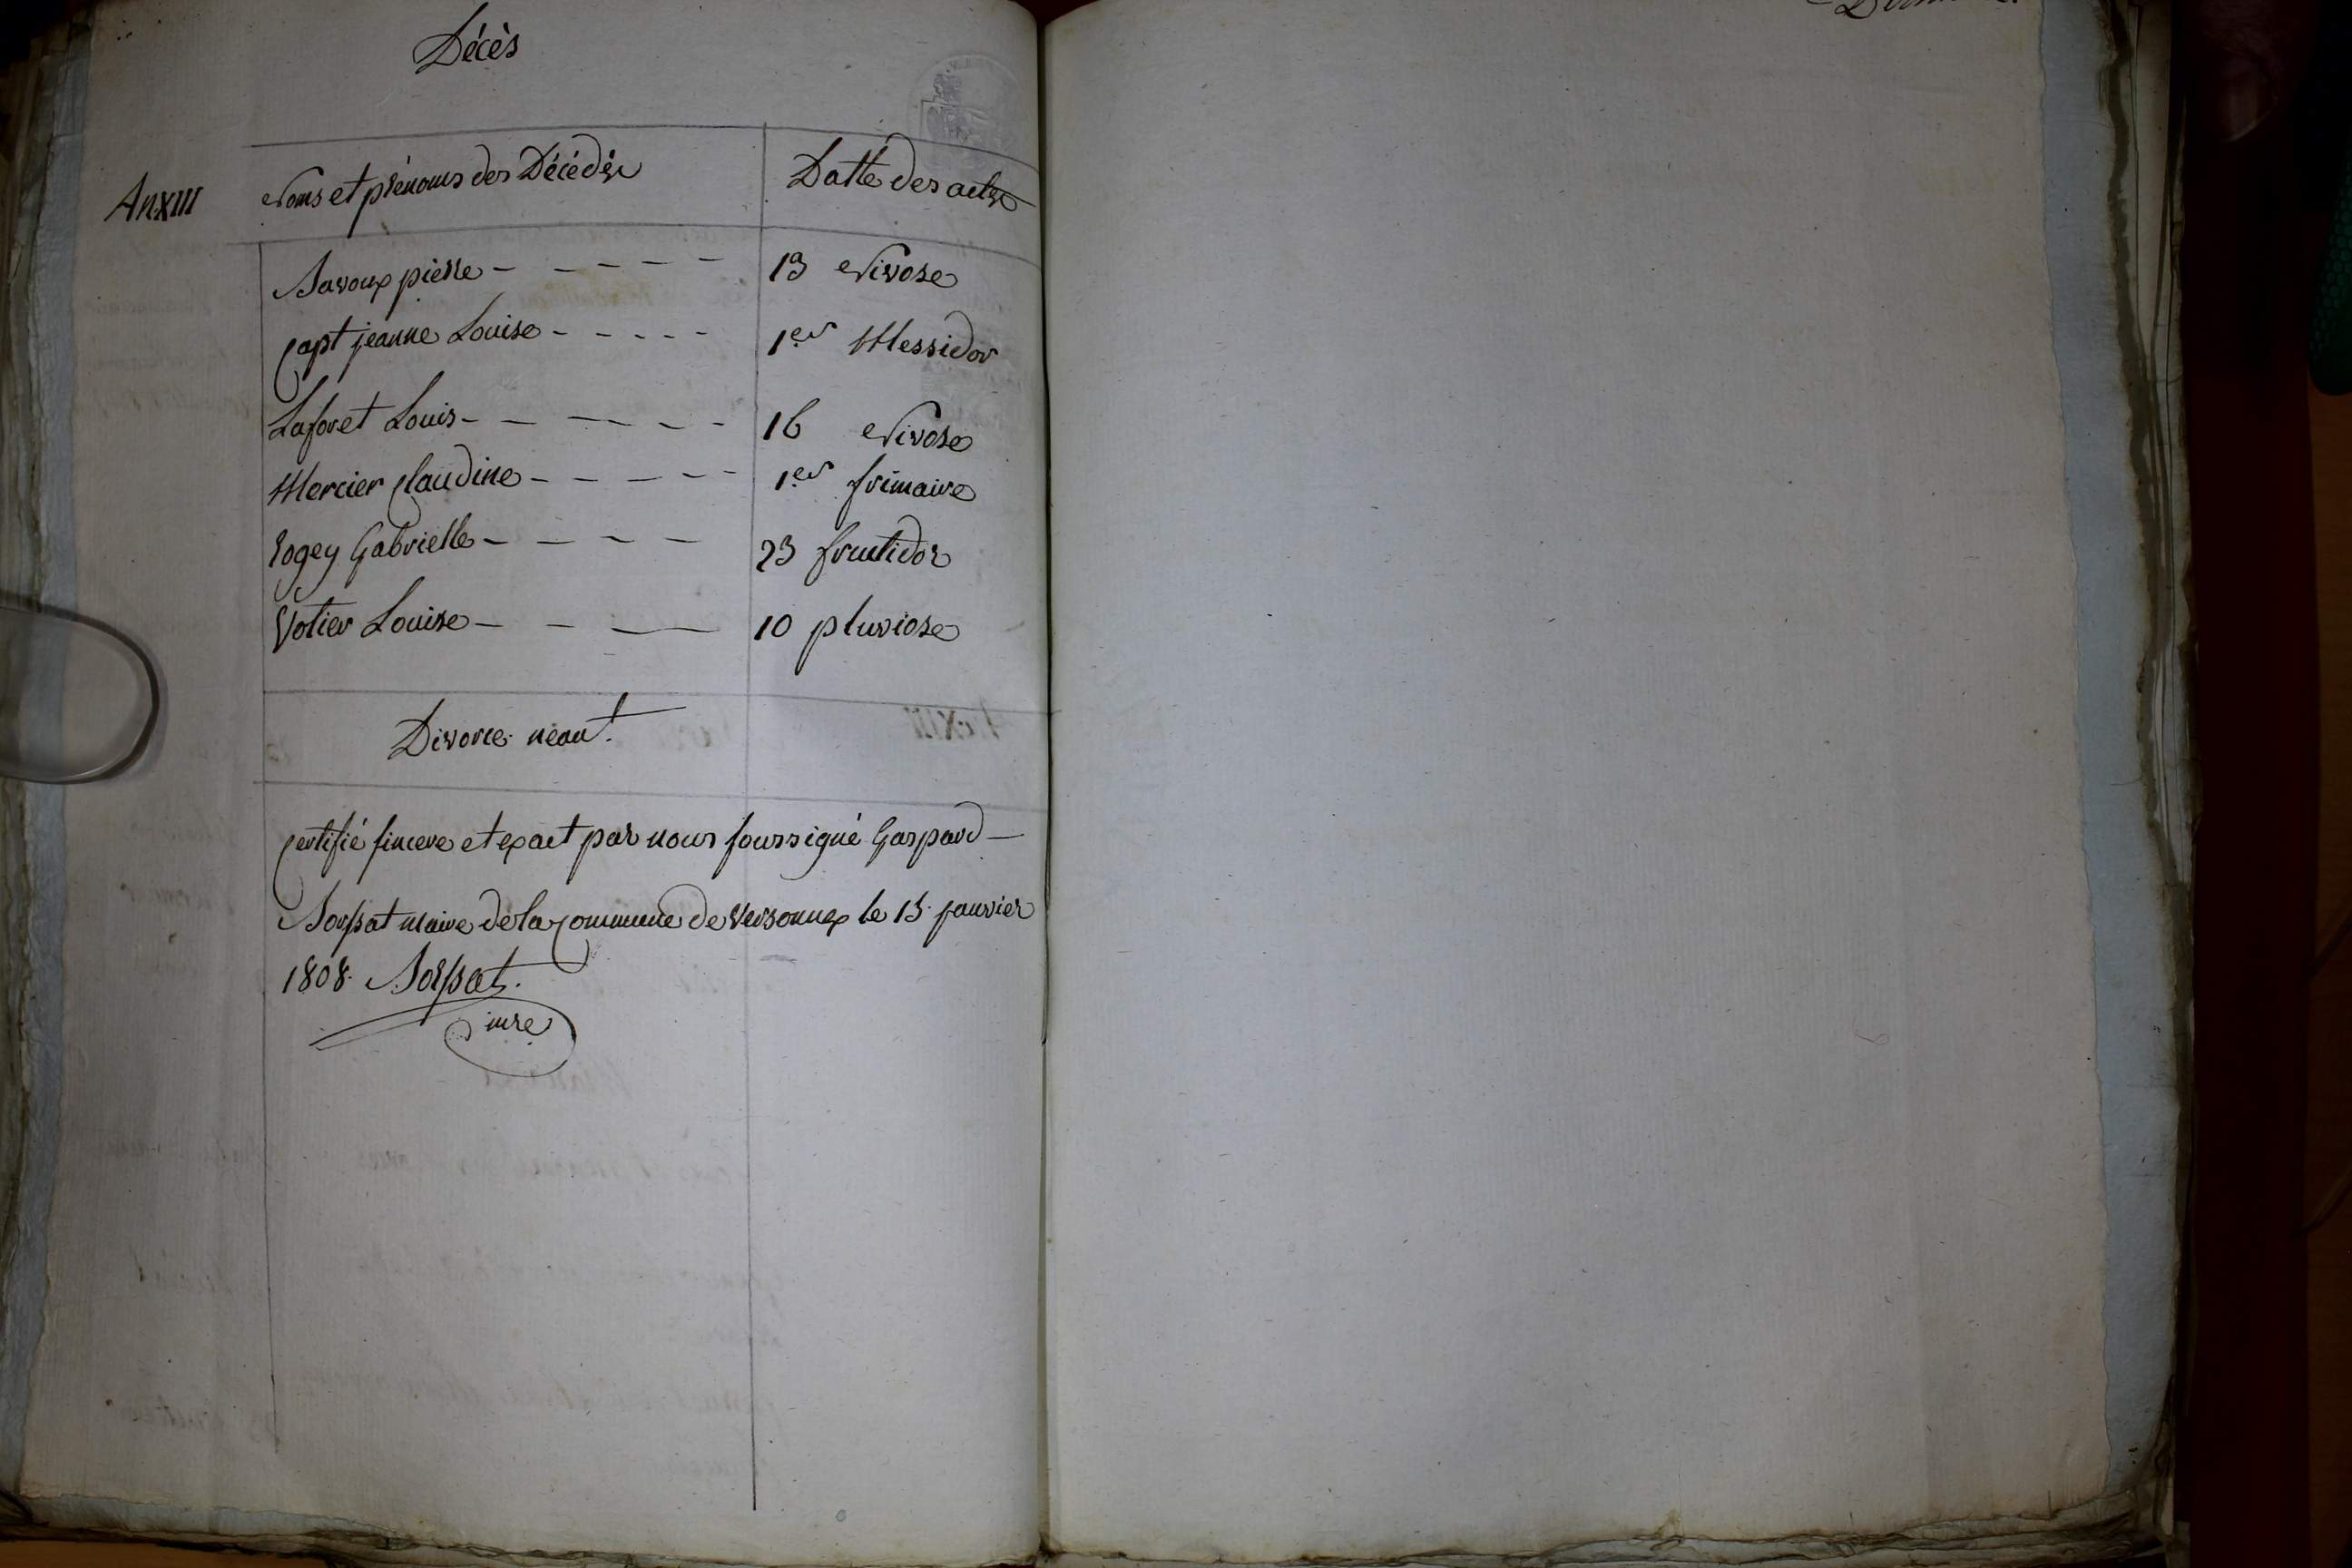 Décès
An XIII
Noms et prénoms des Décédés
Datte des actes
Savoux pierre - - - - - 13 Nivose
Capt jeanne Louise - - - - - 1er Messidor
Laforet Louis - - - - - - 16 Nivose
Mercier Claudine - - - - - 1er frimaire
Rogey Gabrielle - - - - - 23 fructidor
Votier Louise - - - - 10 pluviose
Divorce néant.
Certifié sincere et exact par nous soussigné Gaspard
maire de la Commune de Versonnex le 15 janvier
1808.
mre